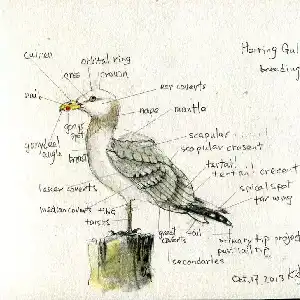 culmen
orbital ring
Herring Gul
crown
breeding
ear coverts
nape
mantle
gonys
spot
gonydeal
angle
breast
scapular
scapular crescent
tertial
tertial crescent
lesser coverts
median coverts
tibia
tarsus
apical spot
far wing
tail
coverts
primary tip project
secondaries
Oct. 17 2013